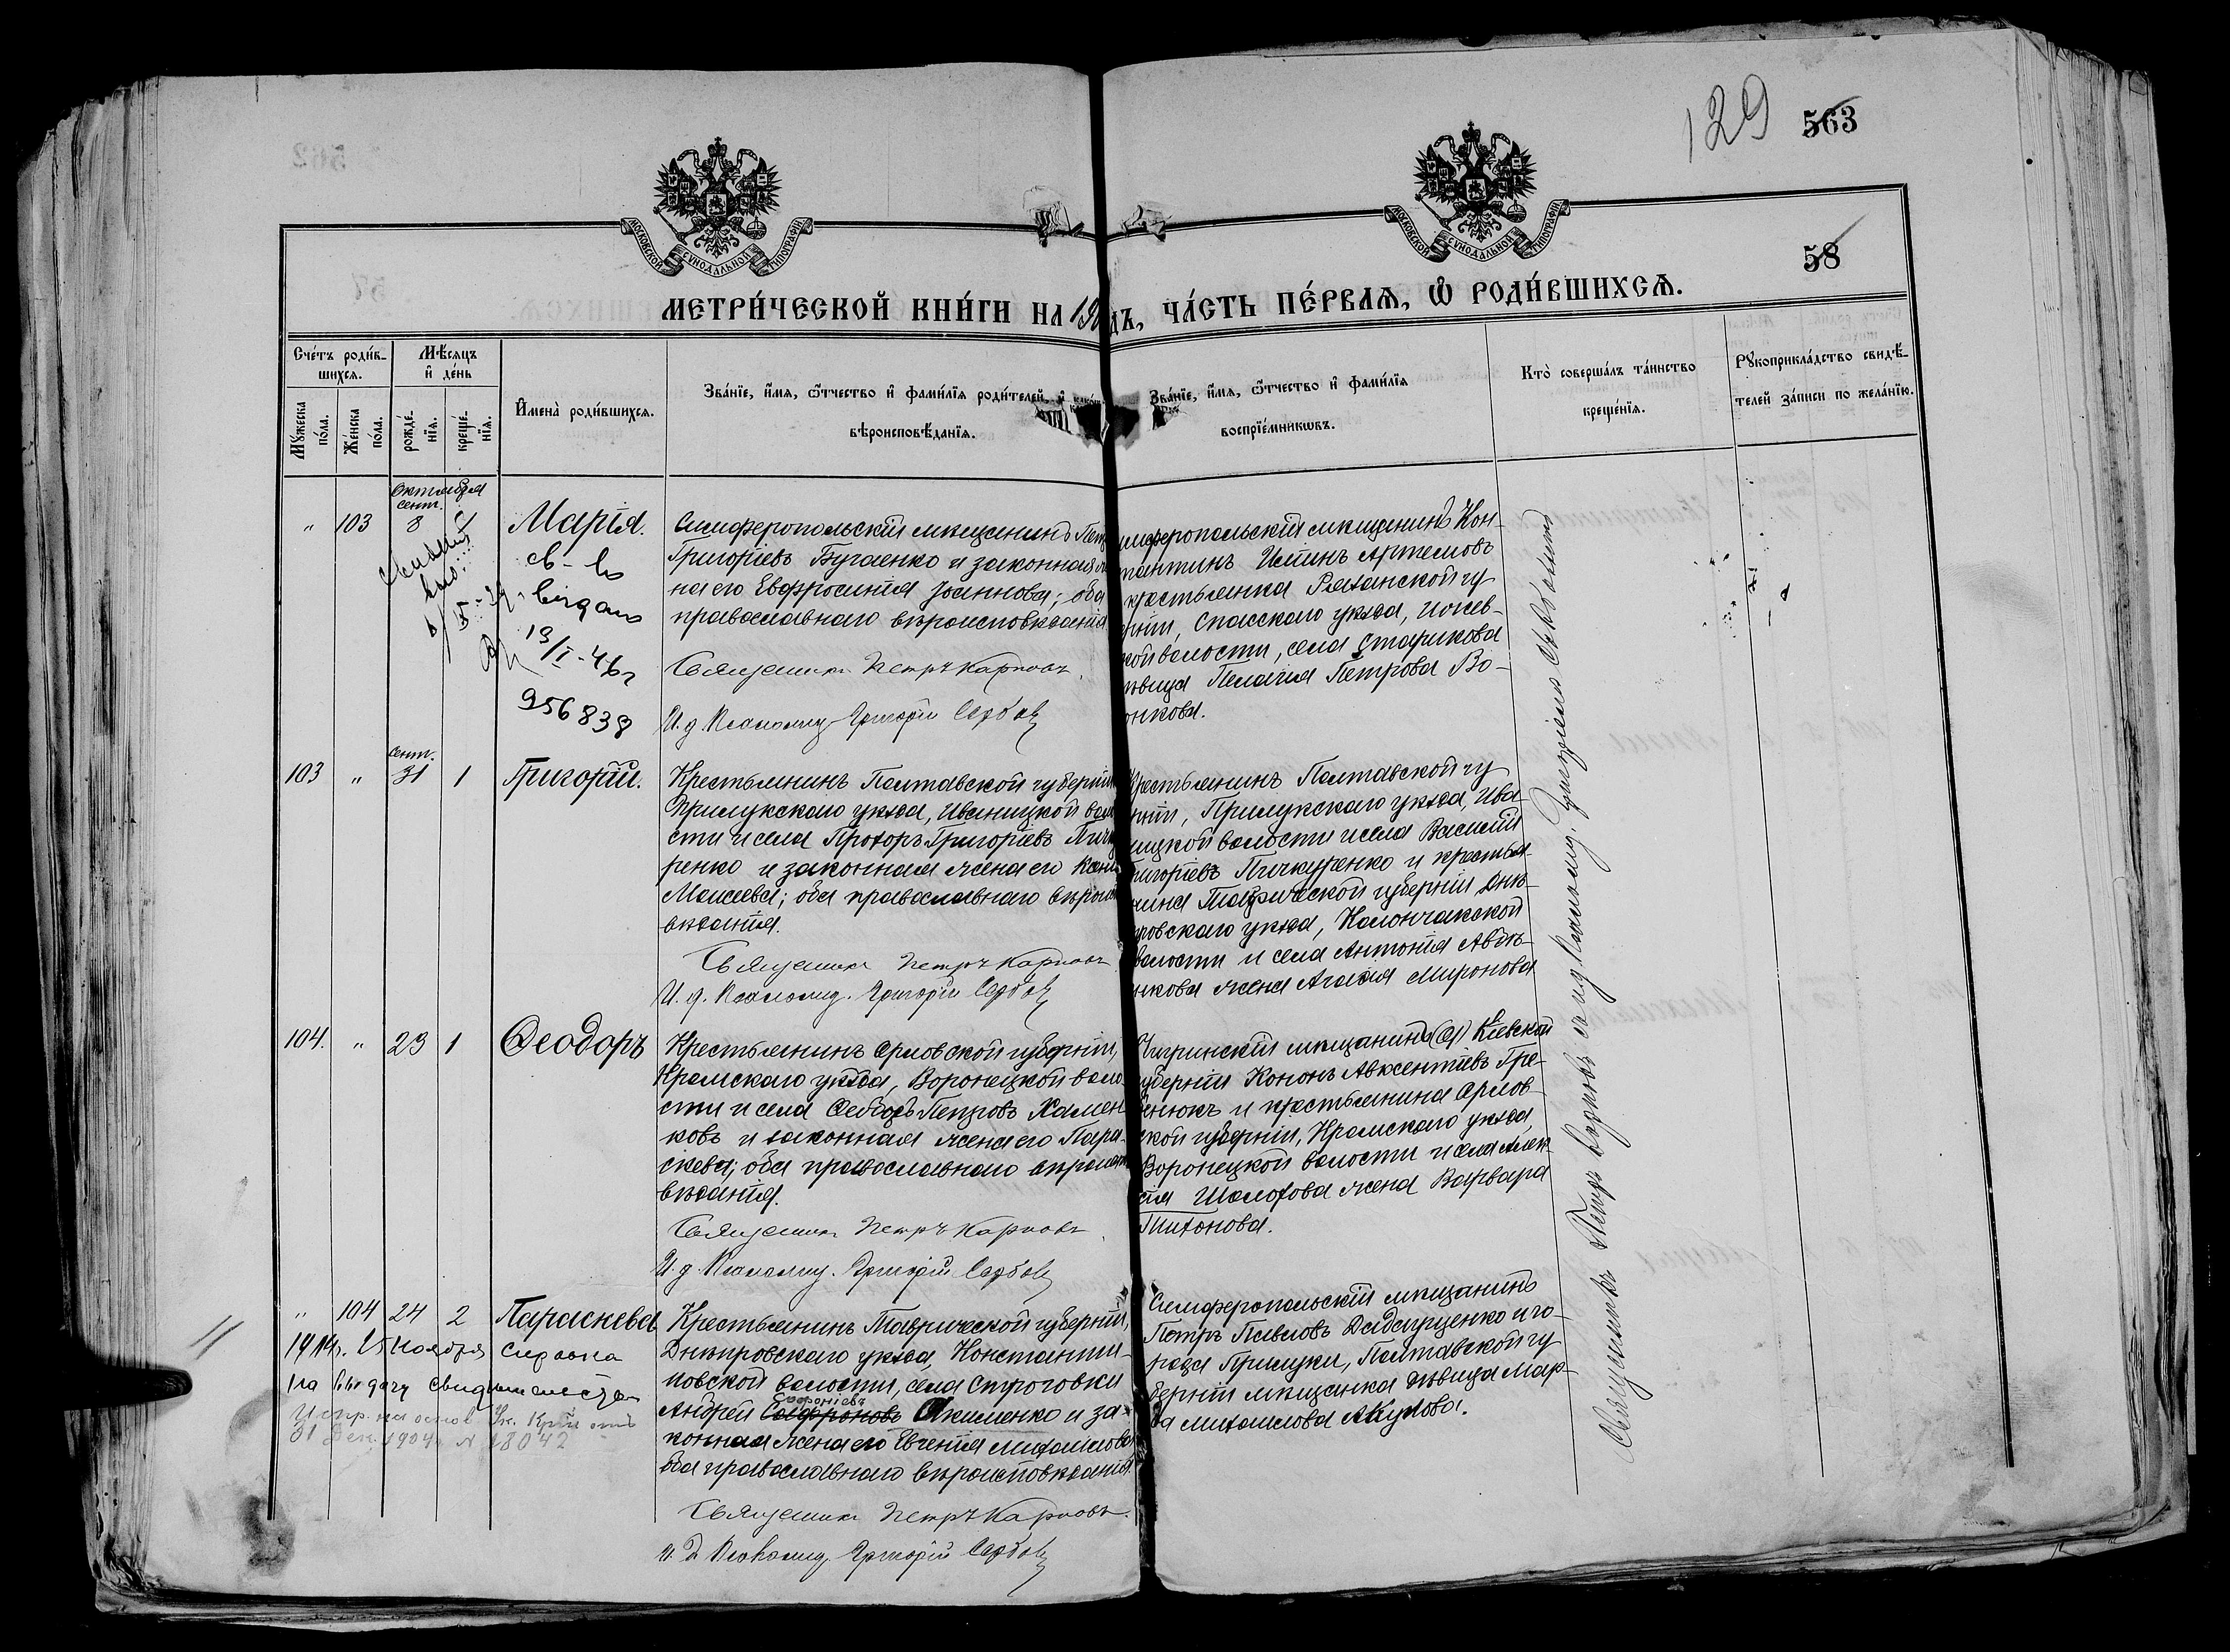 129
563
58
МОСКОВСКОЙ СУНОДАЛЬНОЙ ТИПОГРАФІИ
МОСКОВСКОЙ СУНОДАЛЬНОЙ ТИПОГРАФІИ
МЕТРИ́ЧЕСКОЙ КНИ́ГИ НА 19
дъ, ЧА́СТЬ ПЕ́РВАѦ, Ѽ РОДИ́ВШИХСѦ.
Счетъ роди́в-
шихсѧ.
Мꙋжеска по́ла.
Же́нска по́ла.
Мѣ́сѧцъ
и҆ де́нь
рожде́-
нїѧ.
креще́-
нїѧ.
И҆мена̀ роди́вшихсѧ.
Зва́нїе, и҆́мѧ, ѻ҆́тчество и҆ фами́лїѧ роди́телей, и҆
вѣроисповѣ́данїѧ.
Зва́нїе, и҆́мѧ, ѻ҆́тчество и҆ фами́лїѧ
воспрїе́мникѡвъ.
Кто̀ соверша́лъ та́инство
креще́нїѧ.
Рꙋкоприкла́дство свидѣ́-
телей за́писи по жела́нїю.
Октября
сент.
" 103 8
Марія.
св-во
выдано
19/I-46г
956838
Симферопольскій мѣщанинъ Пет
Григоріевъ Бугаенко и законная
на его Евфросинія Іоаннова; оба
православнаго вѣроисповѣданія
Священникъ Петръ Карповъ
И. д. Псаломщ. Григорій Сербовъ
имферопольскій мѣщанинъ Кон-
тантинъ Артемовъ
крестьянка Рязанской гу
рніи, Спасскаго уѣзда,
кой волости, села Старикова
ѣвица Пелагія Петрова Во-
онкова.
сент.
103 " 31 1
Григорій.
Крестьянинъ Полтавской губерніи
Прилукскаго уѣзда, Иваницкой воло
сти и села Прохоръ Григоріевъ Пичку
ренко и законная жена его
Моисеева; оба православнаго вѣроисп
вѣданія.
Священникъ Петръ Карповъ
И. д. Псаломщ. Григорій Сербовъ
Крестьянинъ Полтавской гу
рніи, Прилукскаго уѣзда, Ива-
ницкой волости и села Василій
ригоріевъ Пичкуренко и крестья-
нина Таврической губерніи Днѣ-
провскаго уѣзда, Каланчакской
волости и села Антонія Авдѣ-
нкова жена Агафія Миронова
104. " 29 1
Ѳеодоръ
Крестьянинъ Орловской губерніи,
Кромскаго уѣзда, Воронецкой воло
сти и села Ѳеодоръ Петровъ Хамен
ковъ и законная жена его Пара-
скева; оба православнаго вѣроиспо
вѣданія.
Священникъ Петръ Карповъ
И. д. Псаломщ. Григорій Сербовъ
Чигиринскій мѣщанинъ Кіевской
губерніи Кононъ Авксентіевъ Гре-
бенюкъ и крестьянина Орлов-
ской губерніи, Кромскаго уѣзда,
Воронецкой волости и села Алек-
сія Шолохова жена Варвара
Тихонова.
" 104 24 2
Параскева
1914г. 25 Ноября справка
на выдачу свидѣтельства
Испр. на основ. Ук.
31 Дек. 1904г. № 18042
Крестьянинъ Таврической губерніи,
Днѣпровскаго уѣзда, Константи-
новской волости, села Строговки
Софроніевъ
Андрей Софроновъ Акименко и за-
конная жена его Евгенія Михаилова
оба православнаго вѣроисповѣданія.
Священникъ Петръ Карповъ.
И. д. Псаломщ. Григорій Сербовъ
Симферопольскій мѣщанинъ
Петръ Павловъ и го-
рода Прилуки, Полтавской гу
берніи мѣщанка дѣвица Мар-
ѳа Михаилова Акулова.
Священникъ Петръ Карповъ съ и. д. Псаломщ. Григоріемъ Сербовымъ